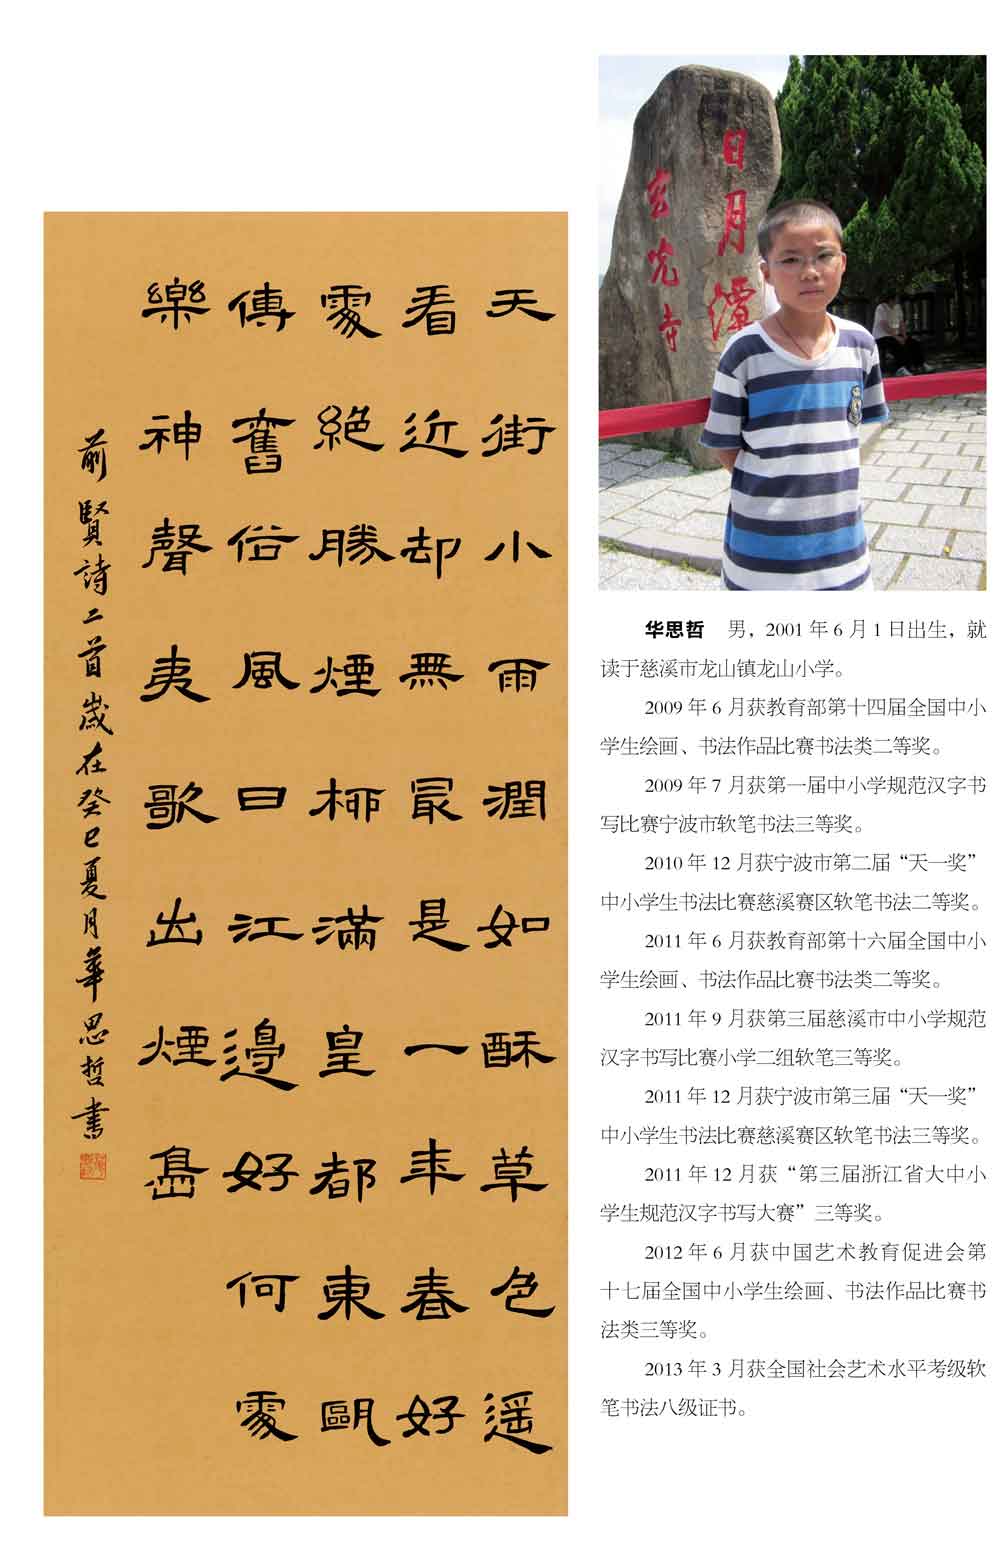 天街小雨潤如酥草色遥
看近却無最是一年春好
處絕勝煙柳滿皇都東甌
傳舊俗風日江邊好何處
樂神聲夷歌出煙島
前賢詩二首歲在癸巳夏月華思哲書
日月潭
玄光寺
华思哲　男，2001 年 6 月 1 日出生，就
读于慈溪市龙山镇龙山小学。
2009 年 6 月获教育部第十四届全国中小
学生绘画、书法作品比赛书法类二等奖。
2009 年 7 月获第一届中小学规范汉字书
写比赛宁波市软笔书法三等奖。
2010 年 12 月获宁波市第二届“天一奖”
中小学生书法比赛慈溪赛区软笔书法二等奖。
2011 年 6 月获教育部第十六届全国中小
学生绘画、书法作品比赛书法类二等奖。
2011 年 9 月获第三届慈溪市中小学规范
汉字书写比赛小学二组软笔三等奖。
2011 年 12 月获宁波市第三届“天一奖”
中小学生书法比赛慈溪赛区软笔书法三等奖。
2011 年 12 月获“第三届浙江省大中小
学生规范汉字书写大赛”三等奖。
2012 年 6 月获中国艺术教育促进会第
十七届全国中小学生绘画、书法作品比赛书
法类三等奖。
2013 年 3 月获全国社会艺术水平考级软
笔书法八级证书。